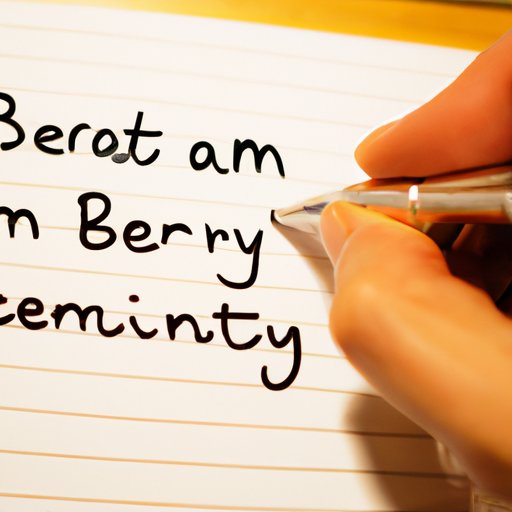 Berot am
m Berry
teminty